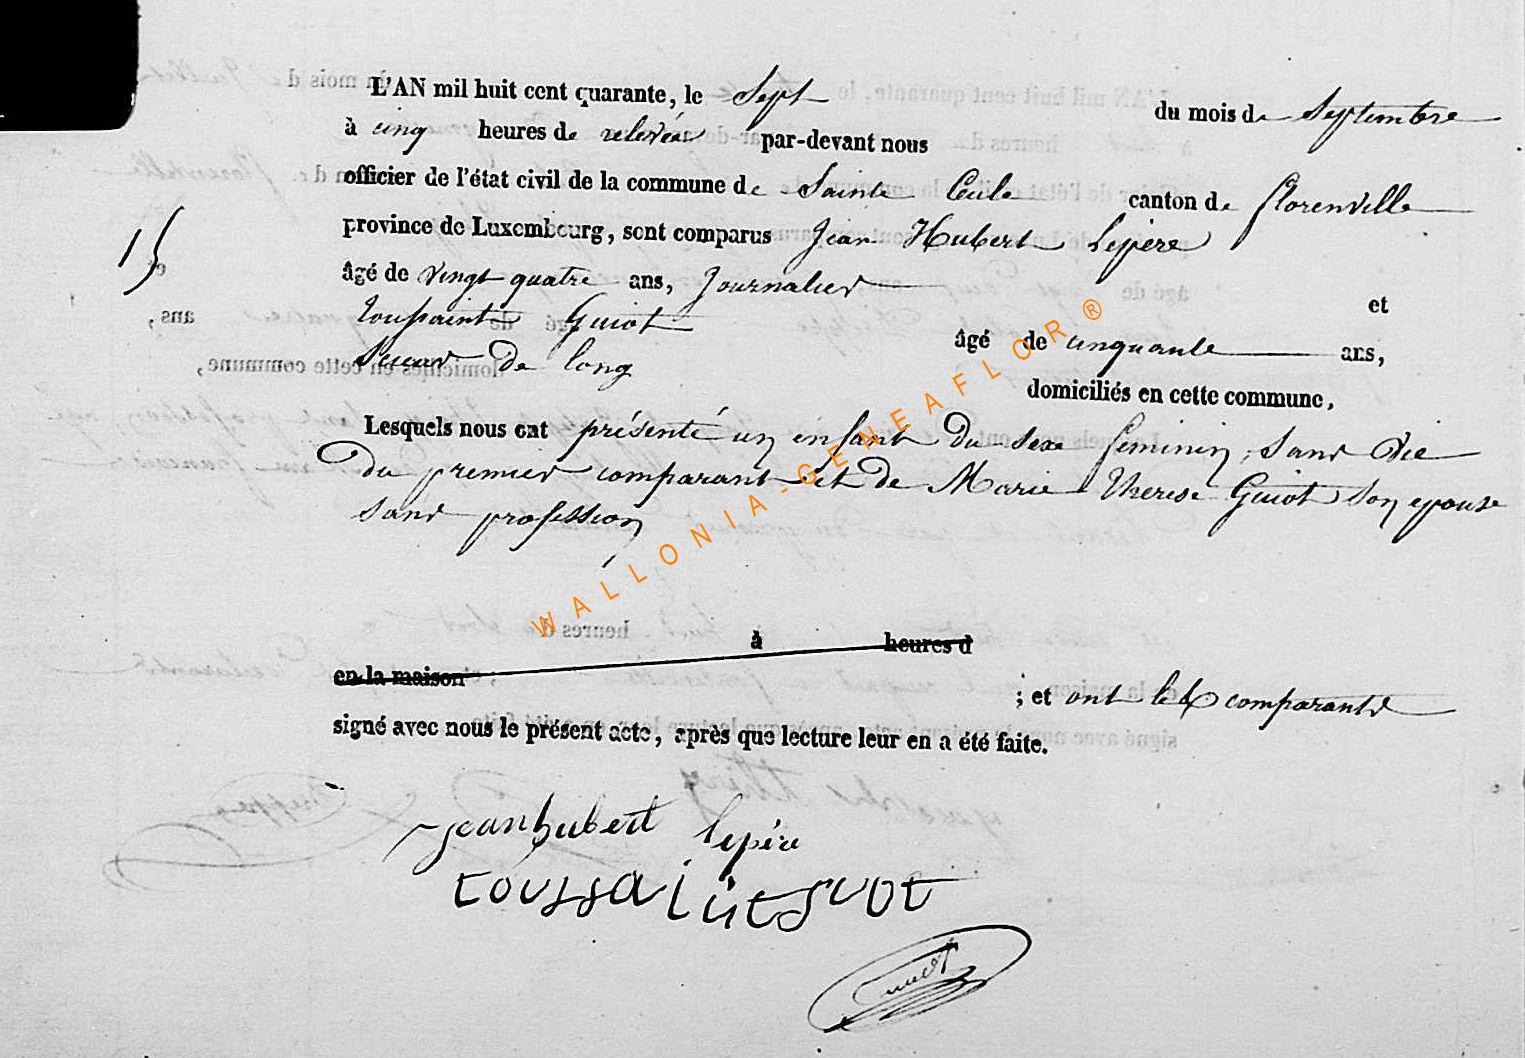 L'AN mil huit cent quarante, le Sept du mois de Septembre
à cinq heures de relevée par-devant nous
officier de l'état civil de la commune de Sainte Cecile canton de florenville
province de Luxembourg, sont comparus Jean Hubert Lepere
15
âgé de vingt quatre ans, Journalier et
toussaint Guiot âgé de cinquante ans,
Scieur de long
domiciliés en cette commune,
Lesquels nous ont présenté un enfant du sexe feminin, sans vie
du premier comparant et de Marie Therese Guiot son epouse
sans profession
à heures d
en la maison
; et ont les comparants
signé avec nous le présent acte, après que lecture leur en a été faite.
jean hubert lepére
toussaint guot
WALLONIA-GENEAFLOR®